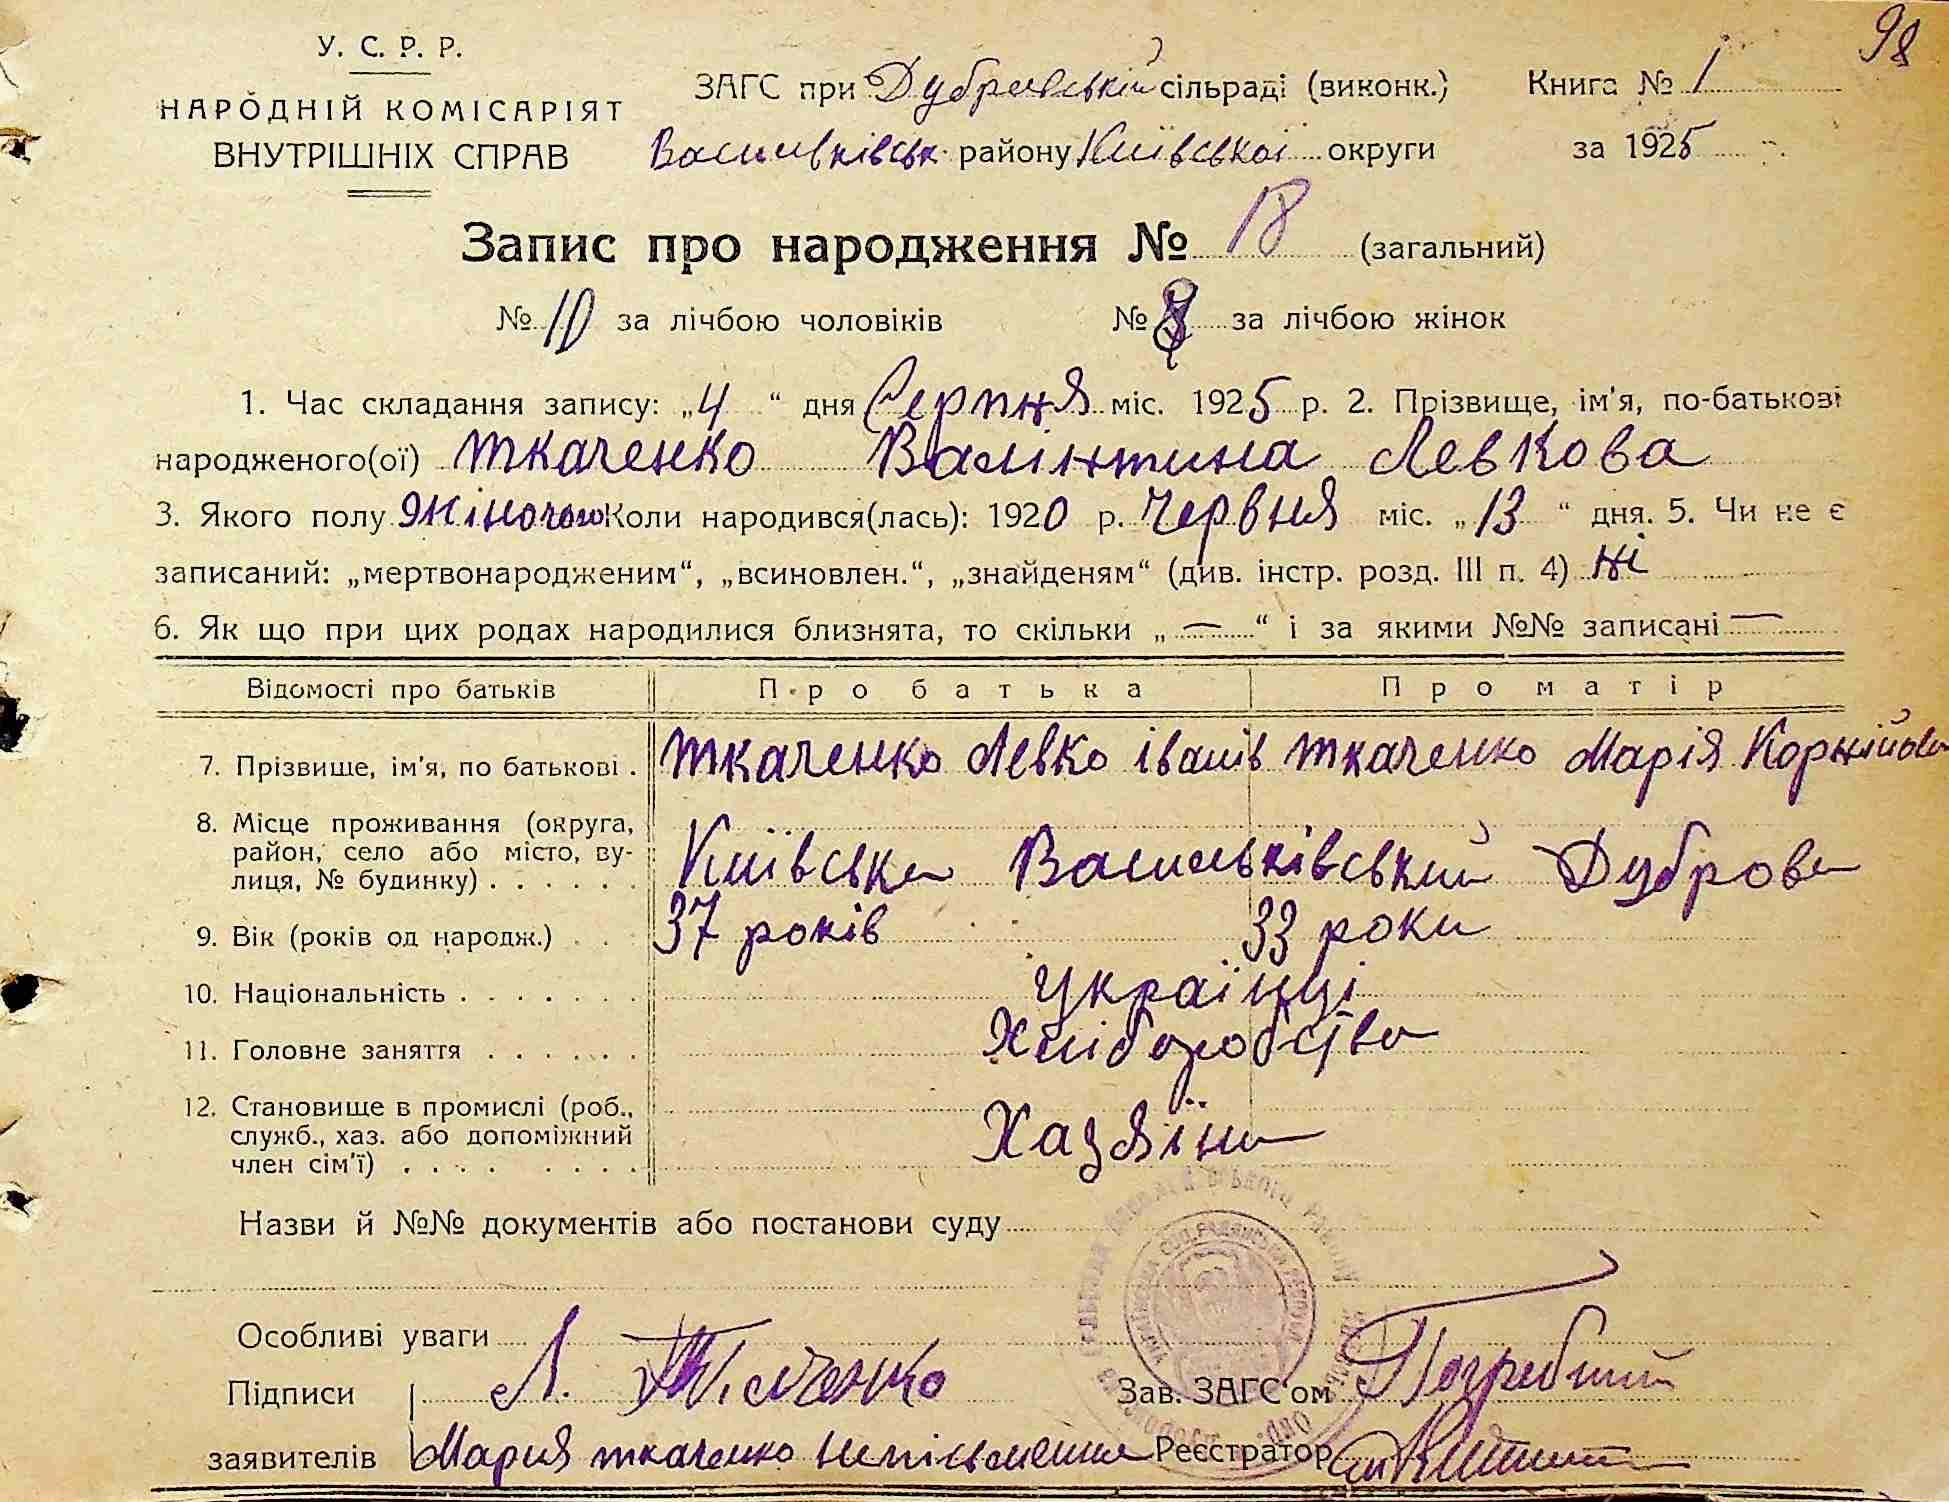 98
У. С. Р. Р.
НАРОДНІЙ КОМІСАРІЯТ
ВНУТРІШНІХ СПРАВ
ЗАГС при Дубровській сільраді (виконк.) Книга № 1
Васильківськ. району Київської округи за 1925
Запис про народження № 18 (загальний)
№ 10 за лічбою чоловіків № 8 за лічбою жінок
1. Час складання запису: „4“ дня Серпня міс. 1925 р. 2. Прізвище, ім'я, по-батькові
народженого(ої) Ткаченко Валінтина Левкова
3. Якого полу жіночого Коли народився(лась): 1920 р. Червня міс. „13“ дня. 5. Чи не є
записаний: „мертвонародженим“, „всиновлен.“, „знайденям“ (див. інстр. розд. III п. 4) ні
6. Як що при цих родах народилися близнята, то скільки „—“ і за якими №№ записані —
Відомості про батьків Про батька Про матір
7. Прізвище, ім'я, по батькові . Ткаченко Левко Іванів Ткаченко Марія Корнійова
8. Місце проживання (округа,
район, село або місто, ву-
лиця, № будинку) . . . . . . Київська Васильківський Дуброва
9. Вік (років од народж.) . . . 37 років 33 роки
10. Національність . . . . . . . Українці
11. Головне заняття . . . . . . Хліборобство
12. Становище в промислі (роб.,
служб., хаз. або допоміжний
член сім'ї) . . . . . . . . Хазяїна
Назви й №№ документів або постанови суду
Особливі уваги
Підписи Л. Ткаченко Зав. ЗАГС'ом Погребний
заявителів Мария Ткаченко неписьменна Реєстратор